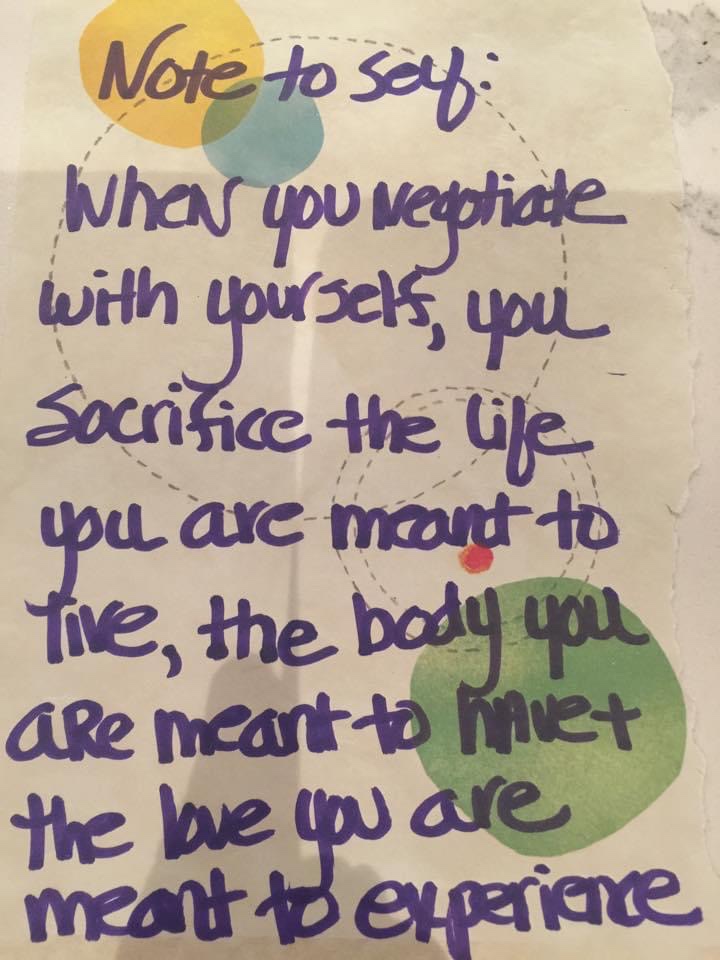 Note to self:
When you negotiate
with yourself, you
sacrifice the life
you are meant to
live, the body you
are meant to have +
the love you are
meant to experience